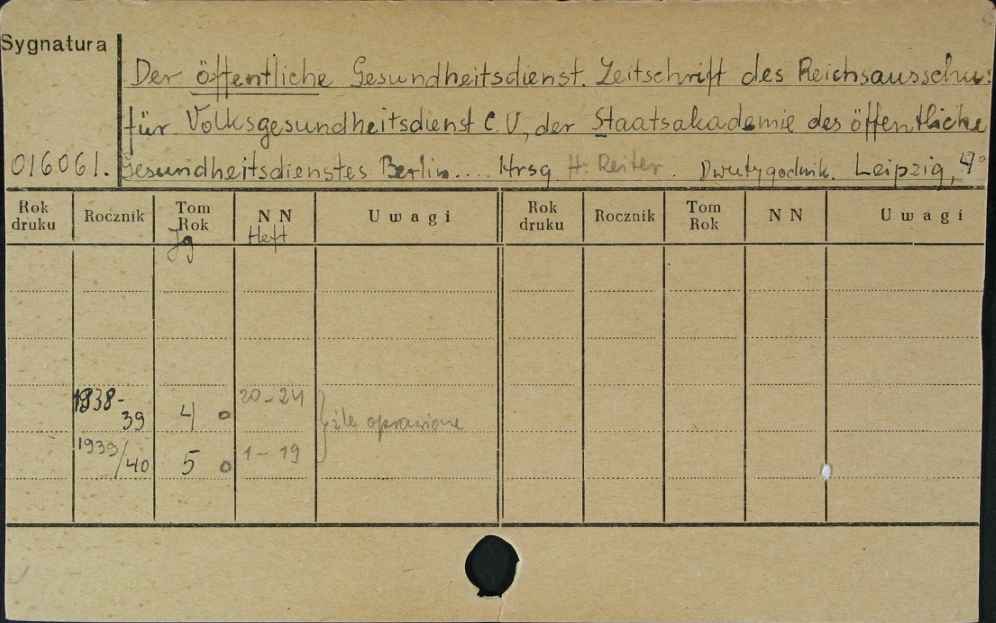 Sygnatura
Der öffentliche Gesundheitsdienst. Zeitschrift des Reichsausschu:
für Volksgesundheitsdienst e. V., der Staatsakademie des öffentliche
016061. Gesundheitsdienstes Berlin.... Hrsg H. Reiter. Dwutygodnik. Leipzig, 4°
Rok druku Rocznik Tom Rok N N U w a g i Rok druku Rocznik Tom Rok N N U w a g i
Jg Heft
1938-39 4 o 20-24 źle oprawione
1939/40 5 o 1-19